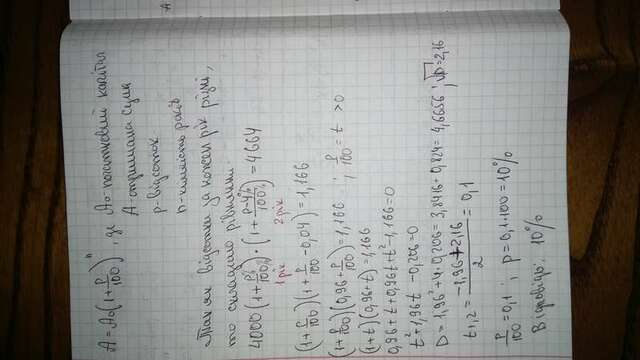 A = A₀(1 + p/100)ⁿ, де A₀-початковий капітал
A-отримана сума
p-відсоток
n-кількість років
Так як відсотки за кожен рік різні,
то складаємо рівняння:
4000 (1 + p%/100%) · (1 + p-4%/100%) = 4664
1 рік 2 рік
(1 + p/100)(1 + p/100 - 0,04) = 1,166
(1 + p/100)(0,96 + p/100) = 1,166 ; p/100 = t > 0
(1 + t)(0,96 + t) = 1,166
0,96 + t + 0,96t + t² - 1,166 = 0
t² + 1,96t - 0,206 = 0
D = 1,96² + 4 · 0,206 = 3,8416 + 0,824 = 4,6656 ; √D = 2,16
t₁,₂ = -1,96 + 2,16 / 2 = 0,1
p/100 = 0,1 ; p = 0,1 · 100 = 10%
Відповідь: 10%